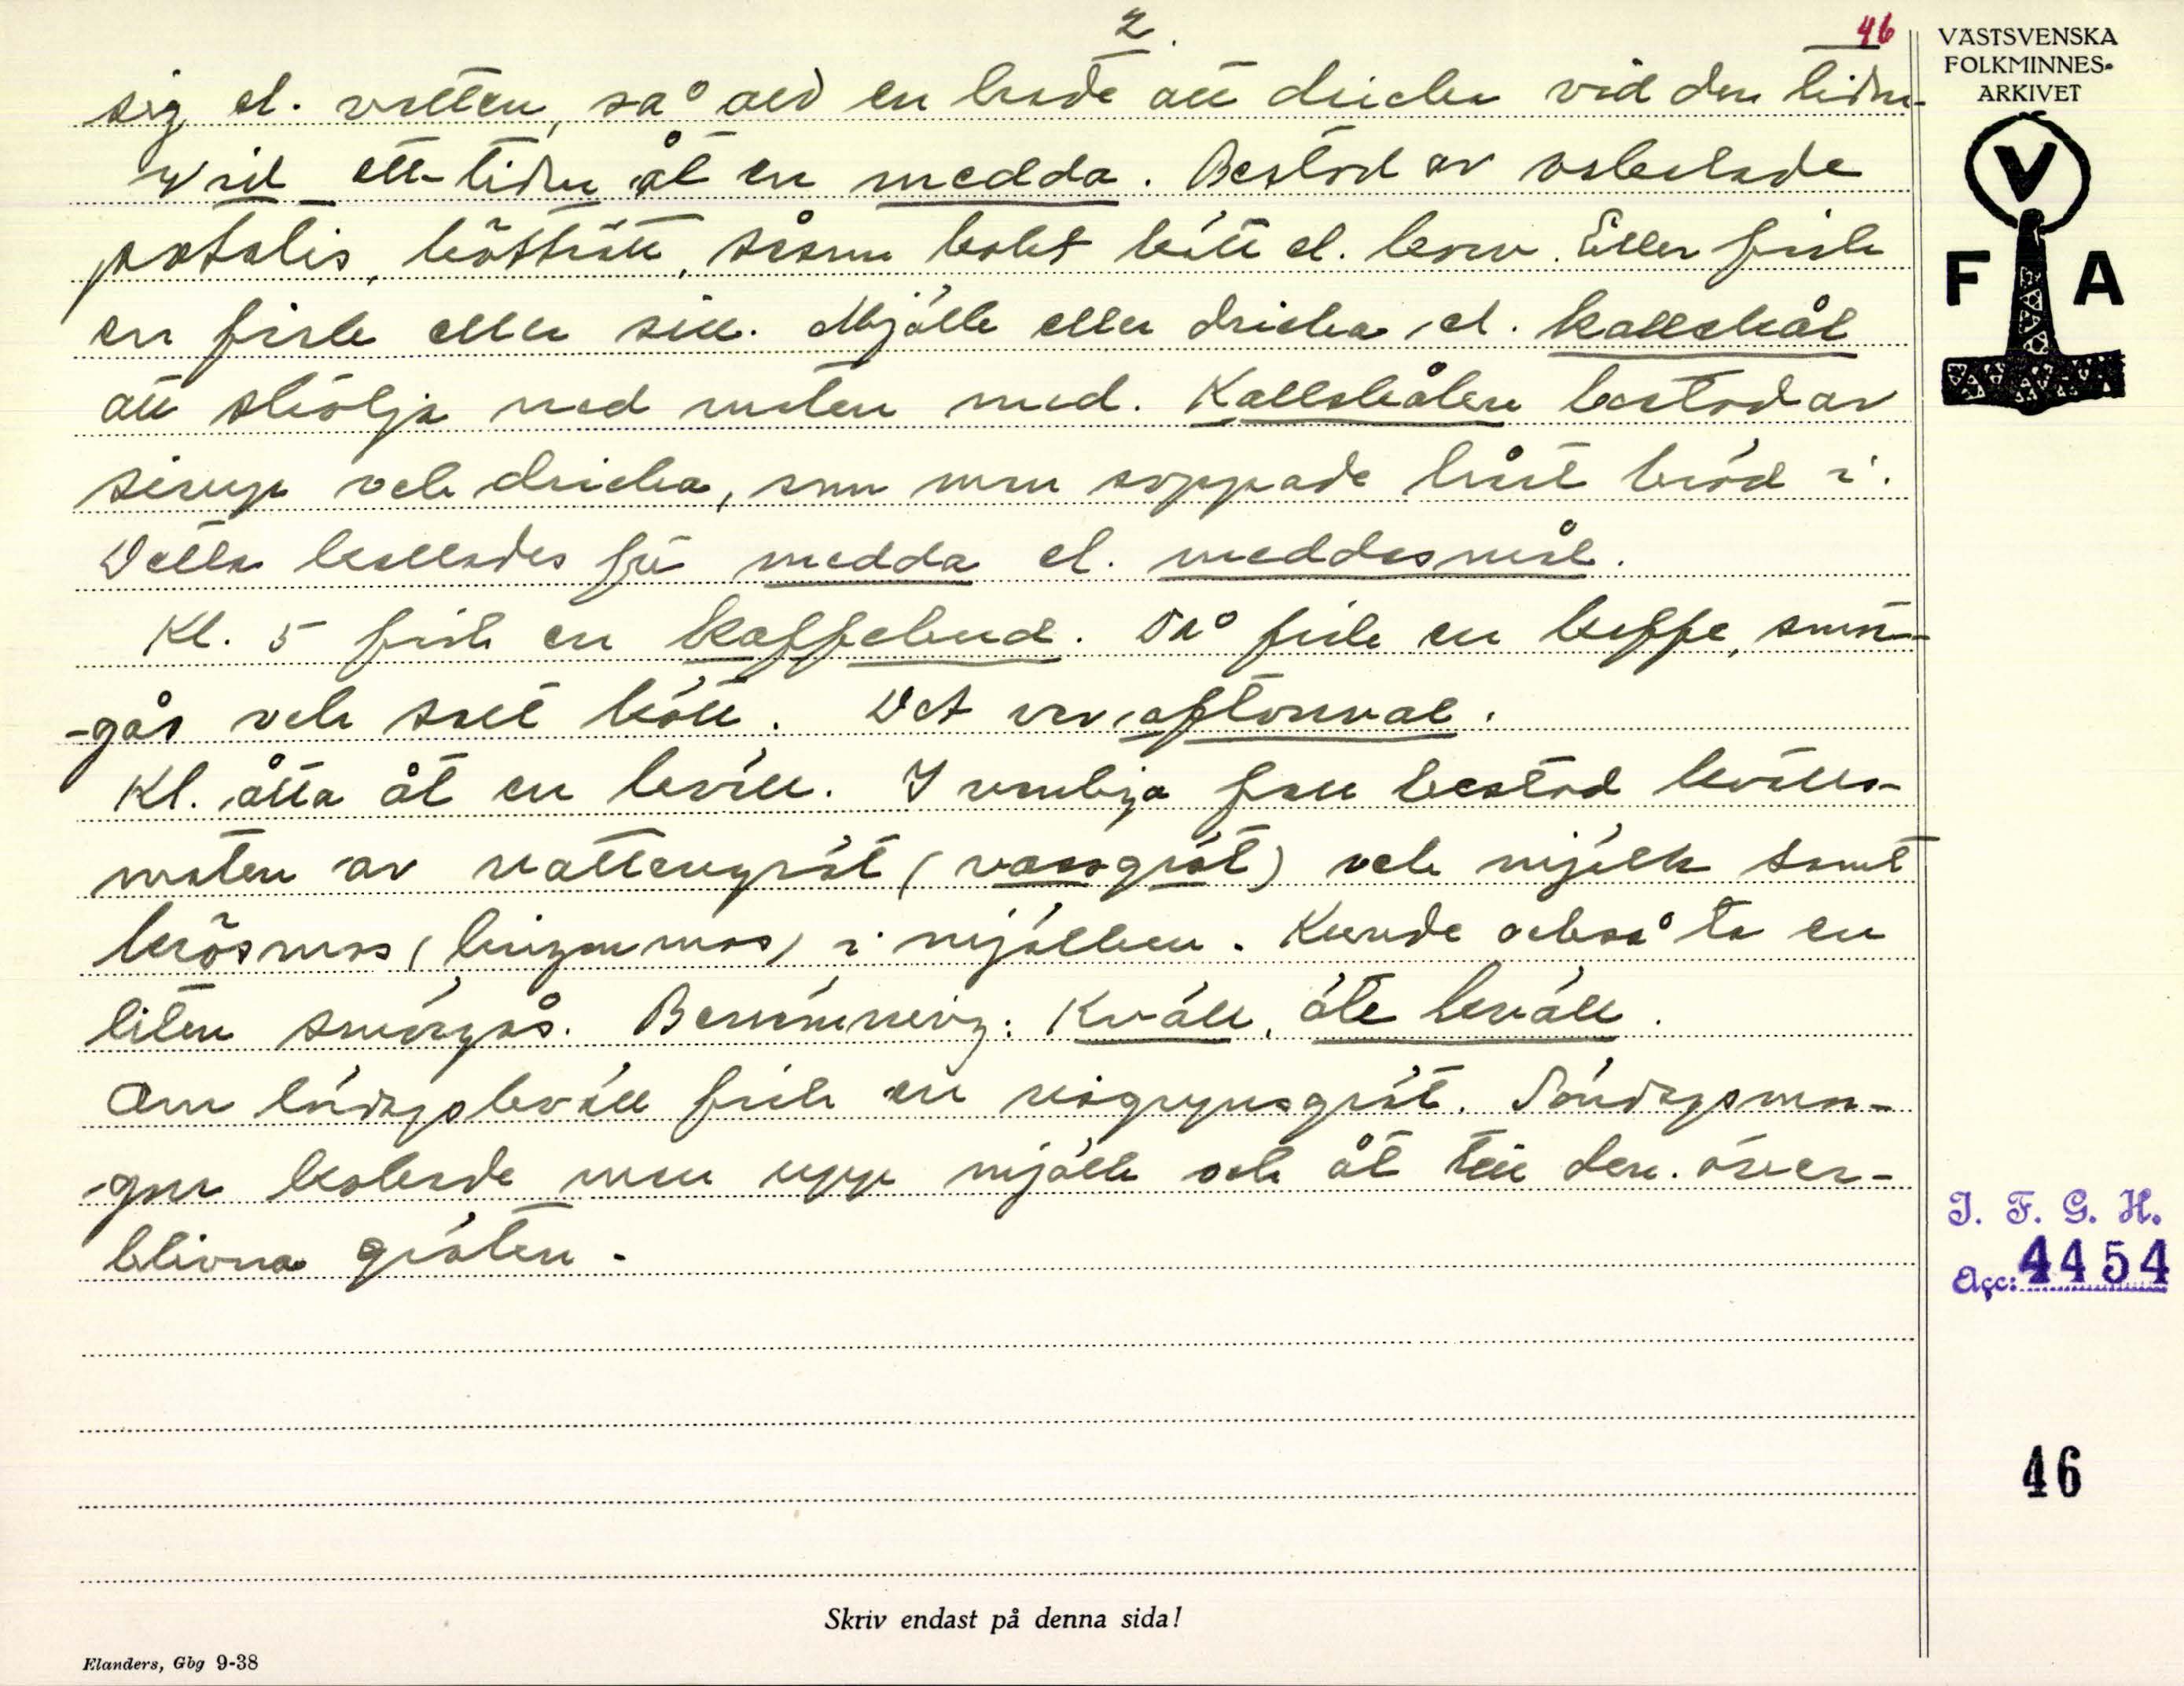 2.
46
VÄSTSVENSKA
FOLKMINNES-
ARKIVET
V
F A
sig el. vatten, så att en hade att dricka vid den tiden.
Vid ett-tiden åt en medda. Bestod av oskalade
potatis, kötträtt, såsom kokt kött el. korv. Eller fick
en fisk eller sill. Mjölk eller dricka, el. kallskål
att skölja ned maten med. Kallskålen bestod av
sirup och dricka, som man soppade hårt bröd i.
Detta kallades för medda el. meddasmål.
Kl. 5 fick en kaffebud. Då fick en kaffe, smör-
-gås och salt kött. Det var aftonval.
Kl. åtta åt en kväll. I vanliga fall bestod kvälls-
maten av vattengröt (vassgröt) och mjölk samt
krösmos (lingonmos) i mjölken. Kunde också ta en
liten smörgås. Benämning: Kväll, äte kväll.
Om lördagskväll fick en risgrynsgröt. Söndagsmor-
gon kokade man upp mjölk och åt till den över-
blivna gröten.
I. F. G. H.
Acc: 4454
46
Skriv endast på denna sida!
Elanders, Gbg 9-38